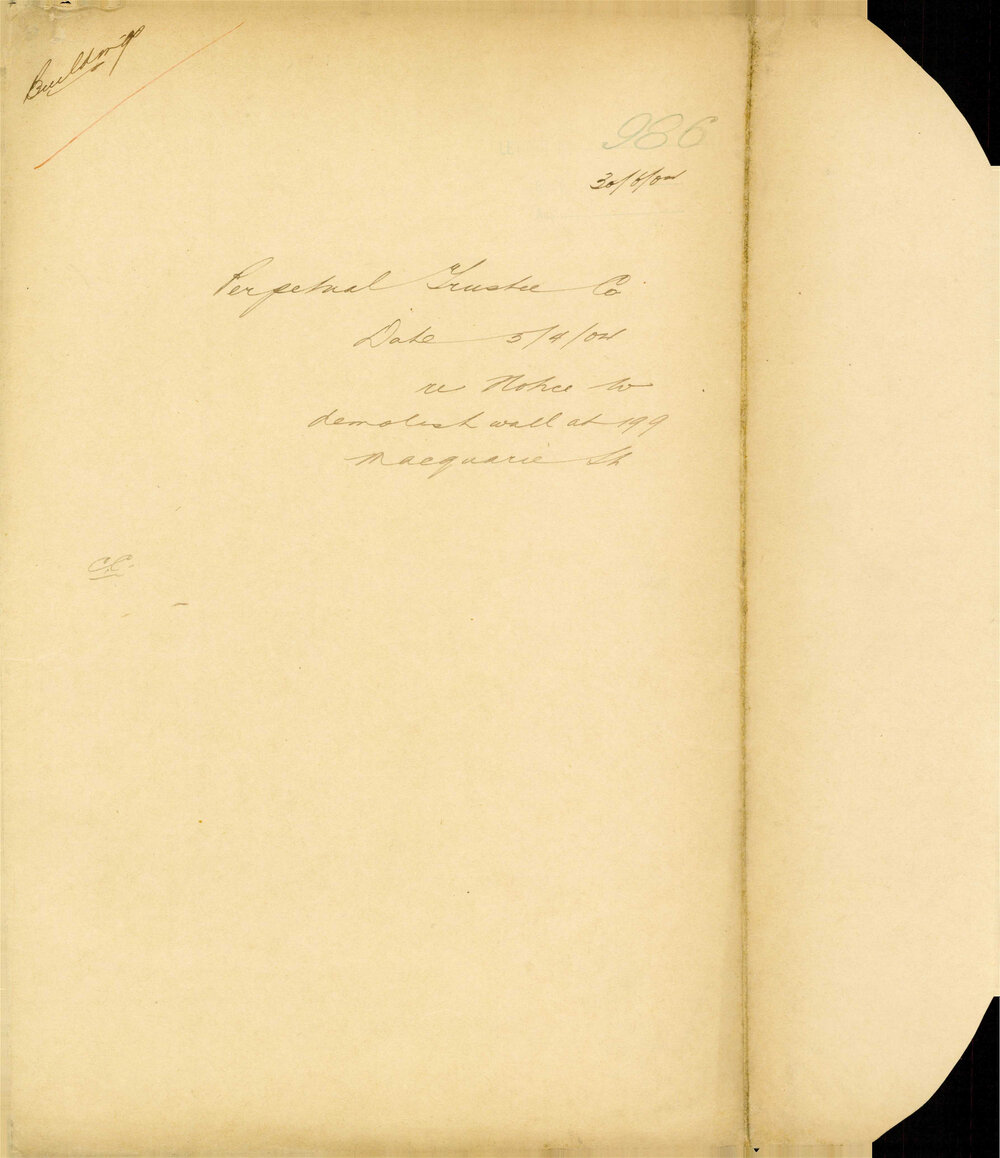 Building
986
30/6/04
Perpetual Trustee Co
Date 5/4/04
re Notice to
demolish wall at 199
Macquarie St
C.C.